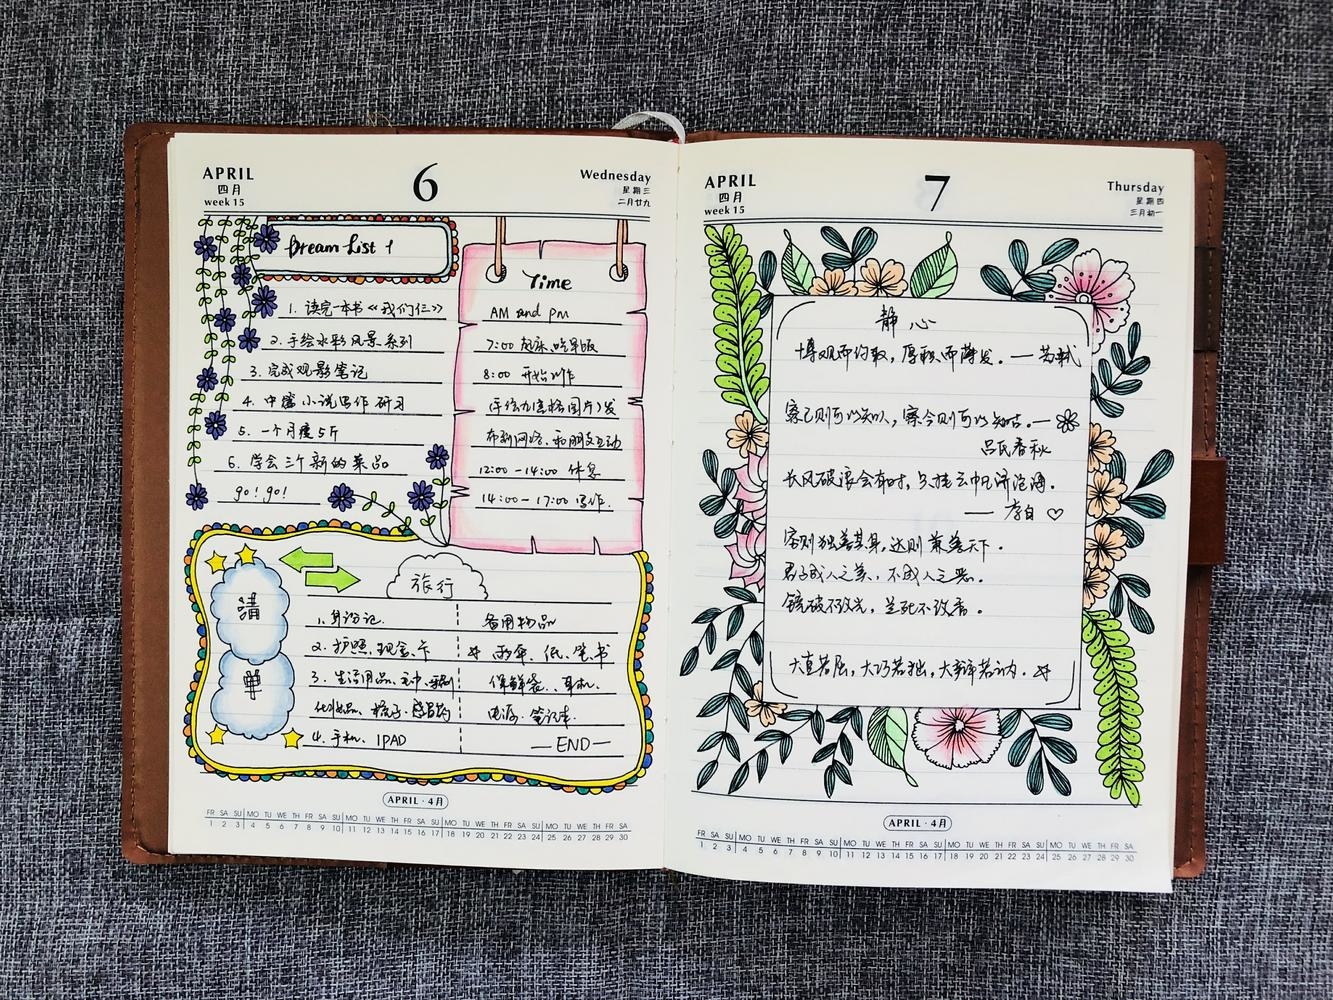 APRIL
四月
week 15
6
Wednesday
星期三
二月廿九
Dream List 1
1. 读完一本书《我们仨》
2. 手绘水彩风景系列
3. 完成观影笔记
4. 中篇小说写作研习
5. 一个月瘦5斤
6. 学会三个新的菜品
go! go!
Time
AM and pm
7:00 起床、吃早饭
8:00 开始创作
布新网络、和朋友互动
12:00 - 14:00 休息
14:00 - 17:00 写作.
清单
旅行
1. 身份证.
2. 护照、现金、卡
3. 生活用品、
化妆品、梳子、感冒药
4. 手机、IPAD
备用物品
雨伞、纸、笔、书
保鲜袋、耳机、
电源、笔记本.
—END—
APRIL · 4月
FR SA SU MO TU WE TH FR SA SU MO TU WE TH FR SA SU MO TU WE TH FR SA SU MO TU WE TH FR SA
1 2 3 4 5 6 7 8 9 10 11 12 13 14 15 16 17 18 19 20 21 22 23 24 25 26 27 28 29 30
APRIL
四月
week 15
7
Thursday
星期四
三月初一
静心
博观而约取，厚积而薄发。— 苏轼
察己则可以知人，察今则可以知古。—
吕氏春秋
长风破浪会有时，直挂云帆济沧海。
— 李白
穷则独善其身，达则兼善天下。
君子成人之美，不成人之恶。
镜破不改光，兰死不改香。
大直若屈，大巧若拙，大辩若讷。
APRIL · 4月
FR SA SU MO TU WE TH FR SA SU MO TU WE TH FR SA SU MO TU WE TH FR SA SU MO TU WE TH FR SA
1 2 3 4 5 6 7 8 9 10 11 12 13 14 15 16 17 18 19 20 21 22 23 24 25 26 27 28 29 30